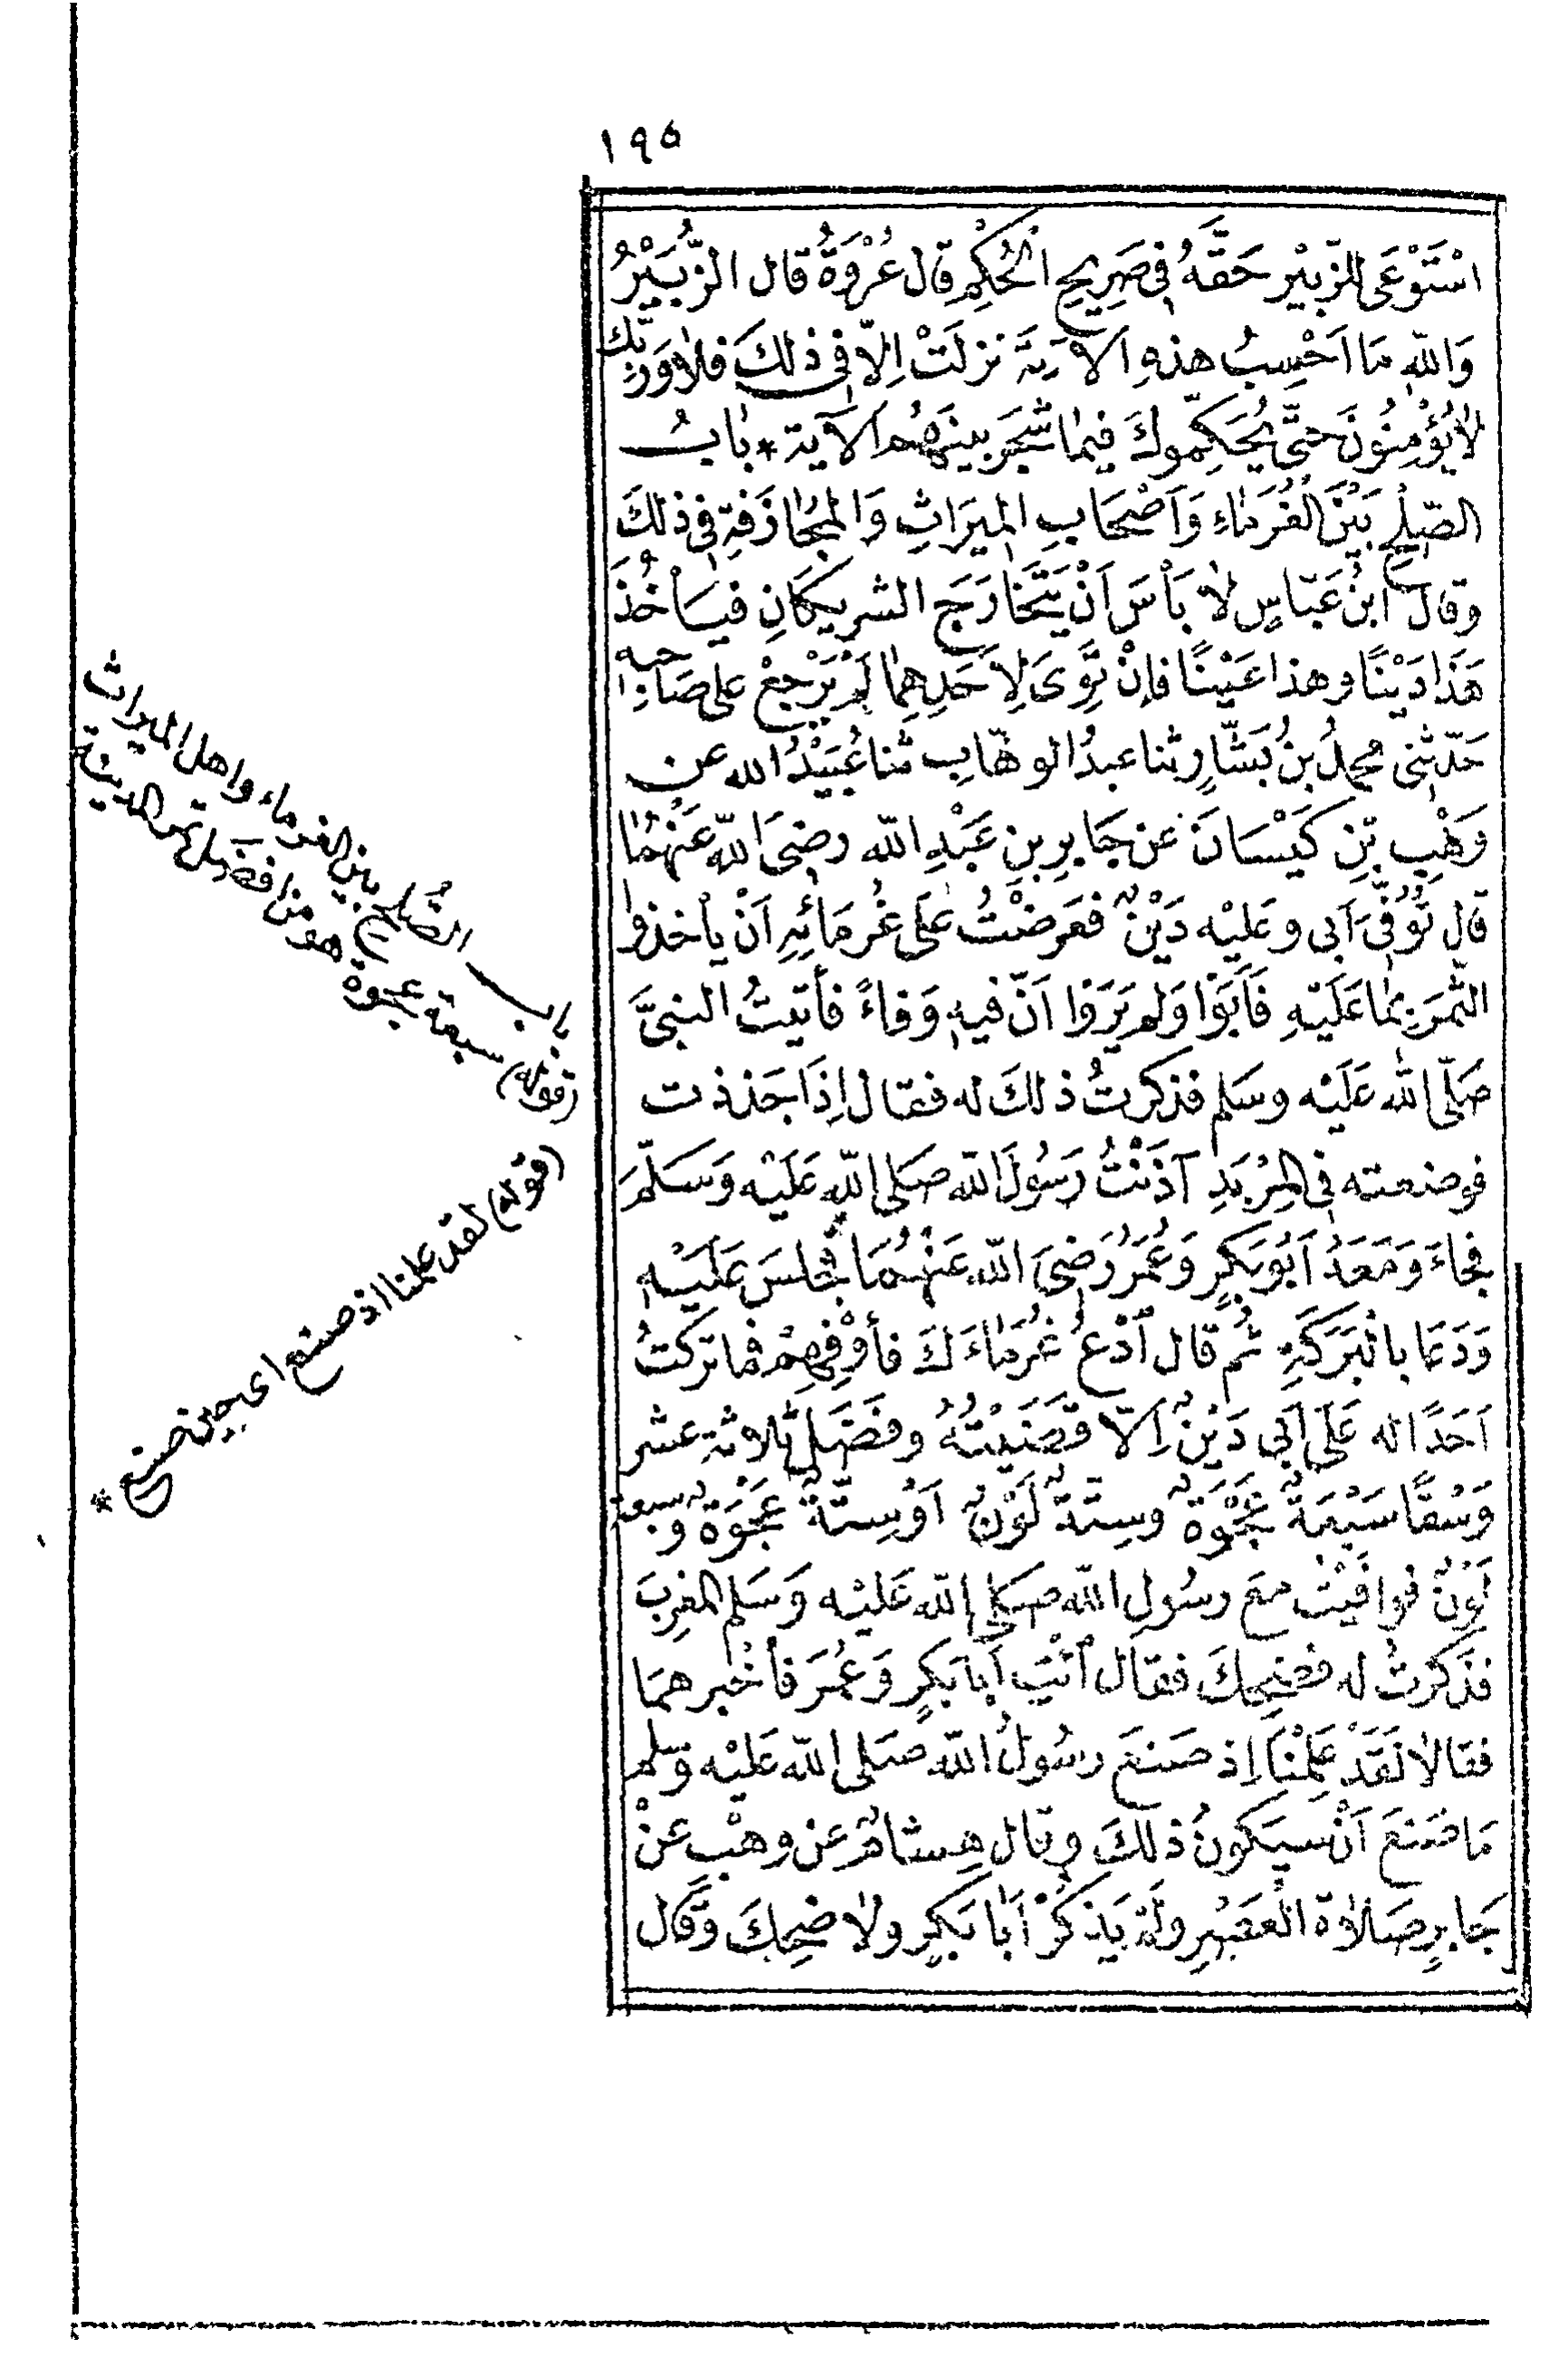 ١٩٥
اسْتَوْعَى للزّبيْر حَقَّهُ فِى صَرِيحِ الْحُكِمْ قال عُرْوَةُ قال الزُّبَيْرُ
وَاللهِ مَا اَحْسِبُ هذهِ اَلآيَةَ نزلَتْ اِلّا فى ذلكَ فلاٰ وَرَبِّك
لاٰ يُؤْمِنُونَ حتَّى يُحَكِّمّوكَ فيمٰا شَجَرَ بينَهُم اَلآية * بٰابُ
الصّلحِ بَيْنَ الغُرَمٰاءِ وَاَصْحَابِ الميَراثِ وَالمجُازَفةِ فى ذلكَ
وقال ابنُ عَبّاسٍ لاٰ بَأسَ اَنْ يَتَخَارَجَ الشريكَانِ فيَأخُذَ
هَذَا دَيْنًا وهذا عَيْنًا فاِنْ تَوِىَ لِاَحَدِهِمٰا لَمْ يَرْجِعْ على صَاحِبِه
حَدّثنى محمدُ بنُ بَشّارٍ ثنا عبدُ الوهّابِ ثنا عُبَيْدُ الله عن
وَهْبِ بْنِ كَيْسَانَ عن جَابرِ بنِ عَبْدِ اللّه رضىَ اللّه عَنْهُمٰا
قال تُوُفّىَ اَبى وعَليْه دَيْنٌ فعَرضْتُ عَلَى غُرمَائِهِ اَنْ يأخذوا
التّمرَ بمٰا عَلَيْهِ فَاَبَوْا وَلم يَرَوْا اَنّ فيهِ وَفاءً فأتيتُ النبىَّ
صَلّى اللّه عَلَيْه وسَلم فذكرتُ ذلكَ له فقال اِذَا جَذذت
فوضعته فى المِرْبَدِ آذَنْتُ رَسُولَ اللّه صَلى اللّهِ عَلَيْه وَسَلّمَ
فجاءَ وَمَعَهُ اَبُو بَكرٍ وَعُمَرُ رَضِىَ اللّه عَنْهُمَا فجلسَ عَلَيْهِ
وَدَعَا بالْبَرَكَةِ ثُم قال اُدْعُ غُرَمٰاءَكَ فأوْفِهِمْ فما تركتُ
اَحَدًا له عَلَى اَبى دَيْنٌ اِلّا قَضَيْتُهُ وفَضَلَ ثَلاٰثة عشر
وَسْقًا سَبْعَةٌ عَجْوَةٌ وسِتّةٌ لَوْنٌ اَوْ سِتّةٌ عَجْوَةٌ وَسبعة
لَوْنٌ فوافَيْتُ معَ رسُولِ اللّه صَلى اللّه عَليْه وَسَلم المغرِبَ
فذَكرْتُ له فضَحِكَ فقال ائتِ اَبا بَكرٍ وَعُمَرَ فأخبرهمَا
فقالاٰ لقَدْ عَلِمْنَا اِذ صَنعَ رسُولُ اللّه صَلى اللّه عَليْه وَسلم
مَا صَنعَ اَنْ سيَكونُ ذلكَ وقال هِشامٌ عن وهْبٍ عنْ
جَابرٍ صَلاٰةَ العَصْرِ ولَمْ يَذكرْ اَبٰا بَكرٍ ولاٰ ضَحِكَ وَقال
باب الصُّلح بين الغرماء واهل الميراث
(قوله) سبعة عجوة هو من افضل تمر المدينة
(قوله) لقد علمنا اذ صنع اى حين صنع *